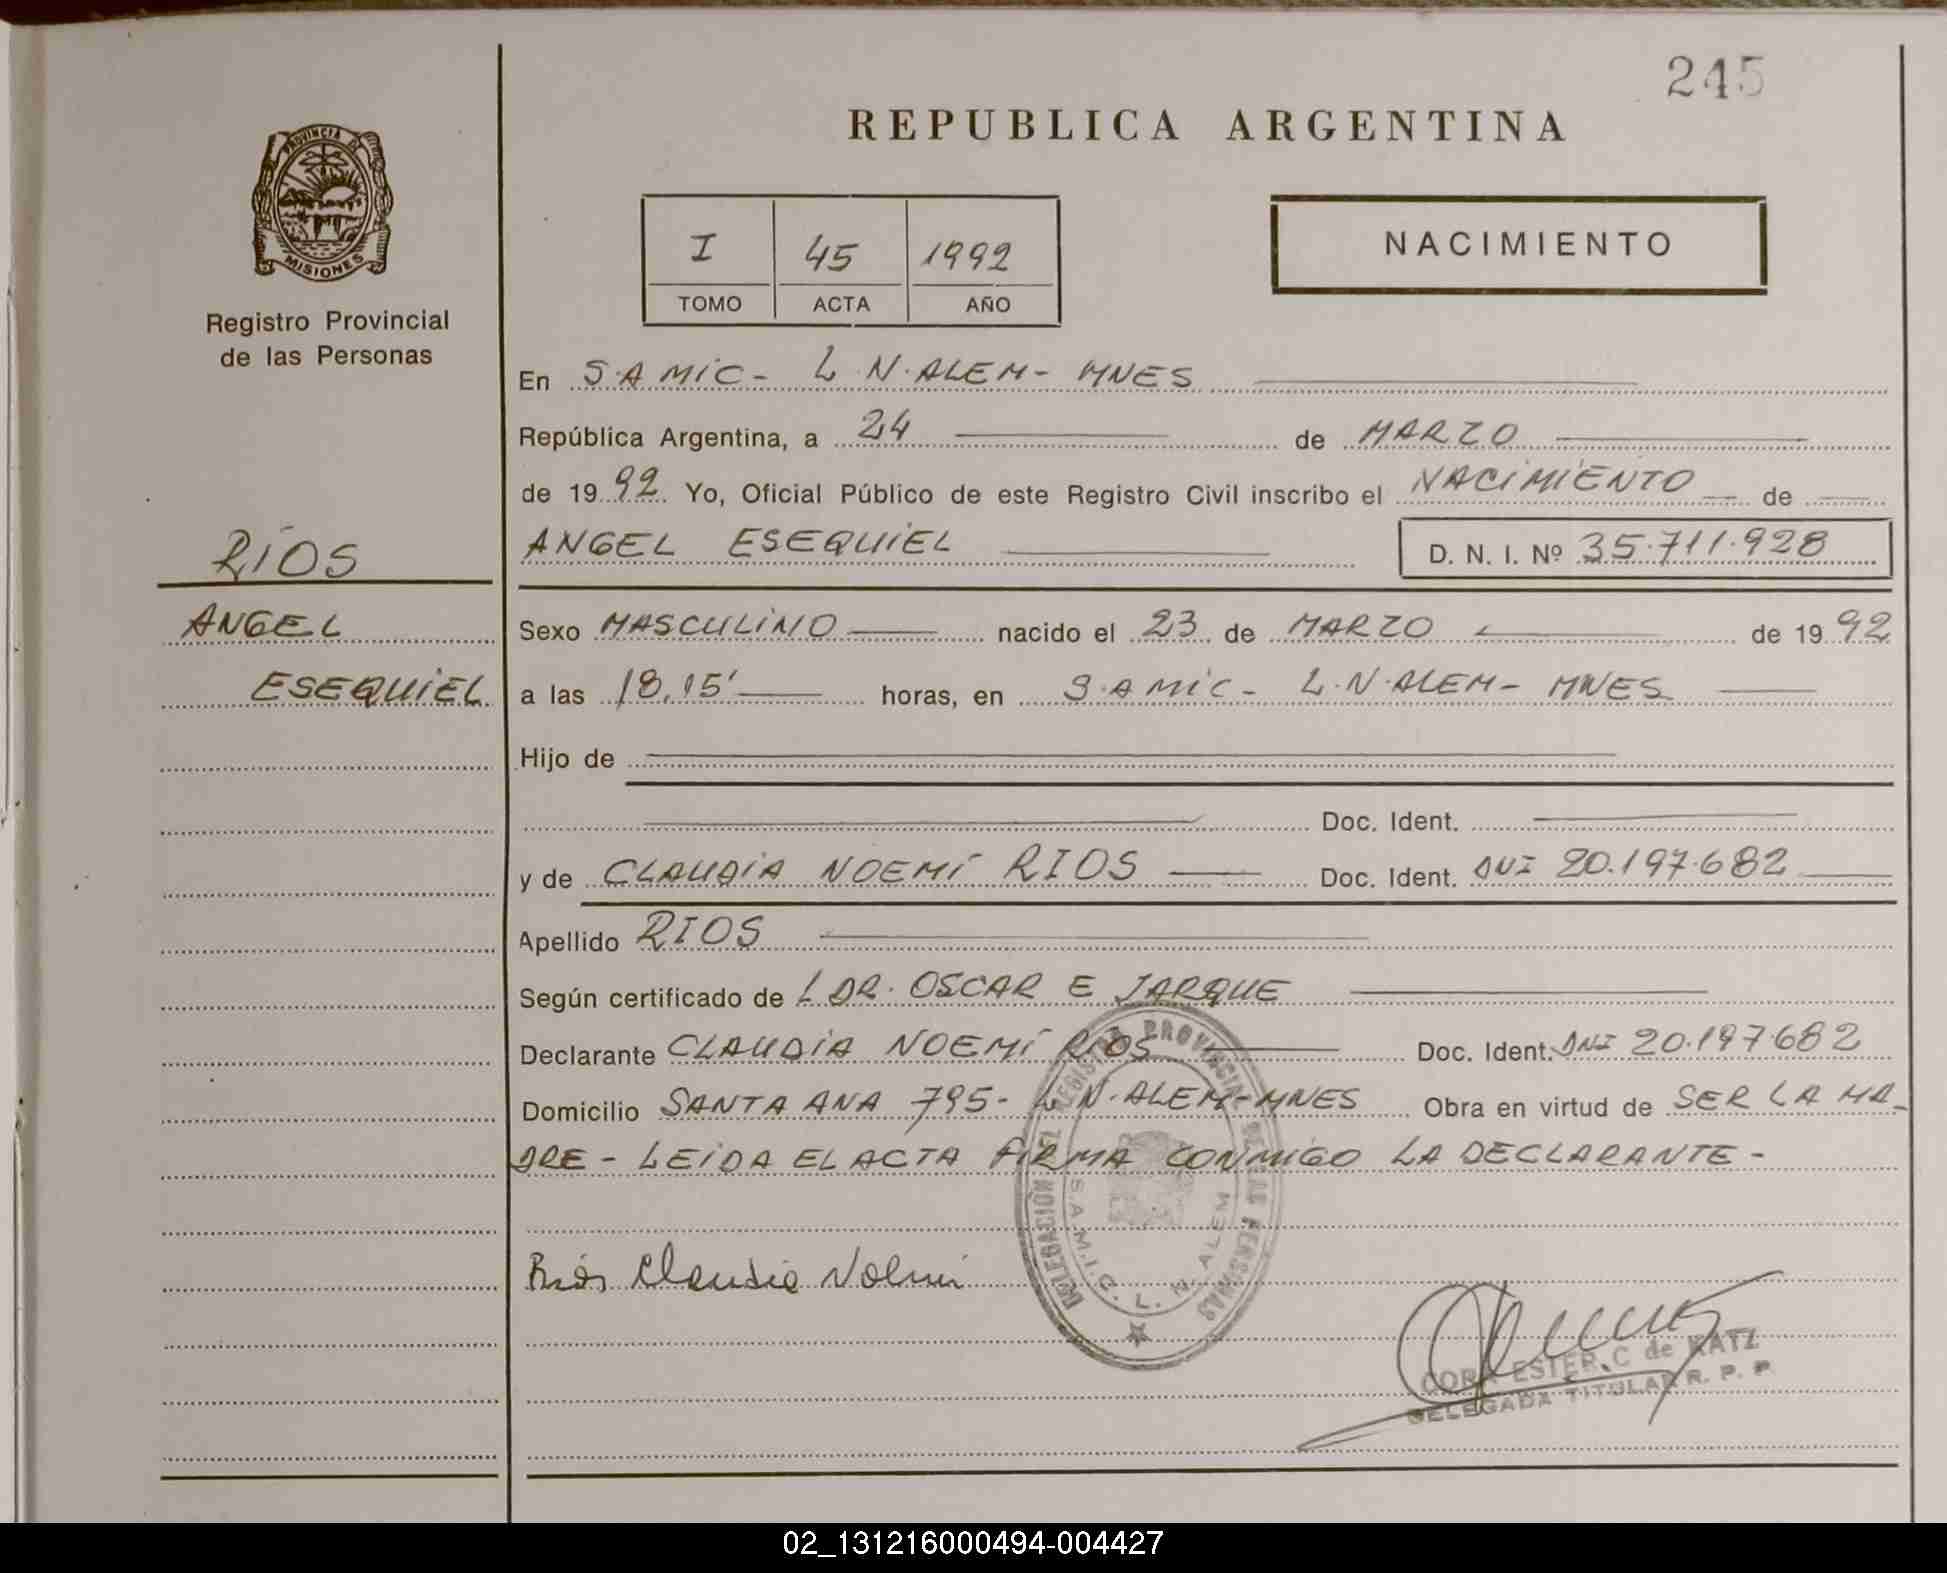 245
REPUBLICA ARGENTINA
PROVINCIA DE
MISIONES
Registro Provincial
de las Personas
I 45 1992
TOMO ACTA AÑO
NACIMIENTO
En S.A.MIC- L.N.ALEM- MNES
República Argentina, a 24 de MARZO
de 1992. Yo, Oficial Público de este Registro Civil inscribo el NACIMIENTO de
ANGEL ESEQUIEL D. N. I. Nº 35.711.928
RÍOS
ANGEL
ESEQUIEL
Sexo MASCULINO nacido el 23 de MARZO de 1992
a las 18,15' horas, en S.A MIC- L.N.ALEM- MNES
Hijo de
Doc. Ident.
y de CLAUDIA NOEMÍ RIOS Doc. Ident. DNI 20.197.682
Apellido RIOS
Según certificado de L DR. OSCAR E JARQUE
Declarante CLAUDIA NOEMÍ RIOS Doc. Ident. DNI 20.197.682
Domicilio SANTA ANA 795- L.N.ALEM-MNES Obra en virtud de SER LA MA-
DRE - LEIDA EL ACTA FIRMA CONMIGO LA DECLARANTE -
DELEGACIÓN DEL REGISTRO PROVINCIAL DE LAS PERSONAS
S.A.M.I.C. L. N. ALEM
Ríos Claudia Noemi
CORA ESTER C de KATZ
DELEGADA TITULAR R. P. P.
02_131216000494-004427